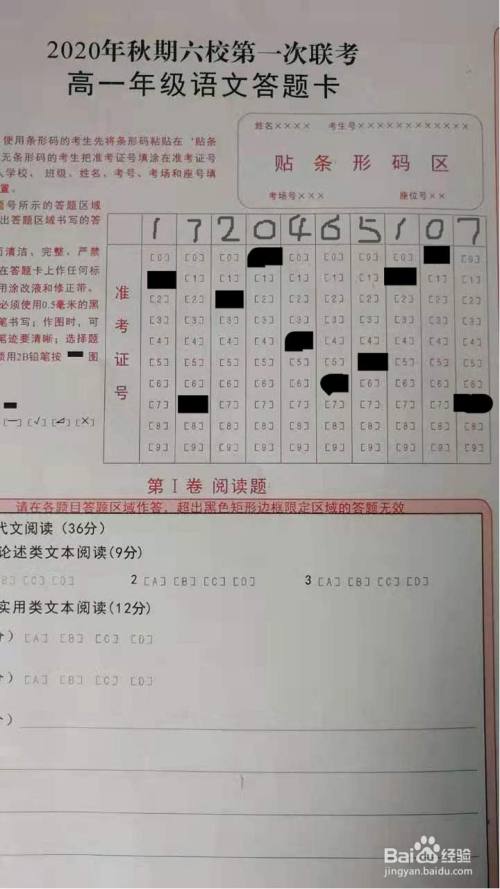 2020年秋期六校第一次联考
高一年级语文答题卡
使用条形码的考生先将条形码粘贴在'贴条
无条形码的考生把准考证号填涂在准考证号
学校、班级、姓名、考号、考场和座号填
置。
题号所示的答题区域
出答题区域书写的答
而清洁、完整、严禁
在答题卡上作任何标
用涂改液和修正带。
必须使用0.5毫米的黑
笔书写；作图时，可
笔迹要清晰；选择题
须用2B铅笔按 图
[一] [√] [⊿] [×]
姓名×××× 考生号××××××××××××
贴条形码区
考场号××× 座位号××
1 7 2 0 4 6 5 1 0 7
准考证号
[0] [0] [0] [0] [0] [0] [0] [0]
[1] [1] [1] [1] [1] [1] [1] [1]
[2] [2] [2] [2] [2] [2] [2] [2] [2]
[3] [3] [3] [3] [3] [3] [3] [3] [3] [3]
[4] [4] [4] [4] [4] [4] [4] [4] [4]
[5] [5] [5] [5] [5] [5] [5] [5] [5]
[6] [6] [6] [6] [6] [6] [6] [6] [6]
[7] [7] [7] [7] [7] [7] [7] [7]
[8] [8] [8] [8] [8] [8] [8] [8] [8] [8]
[9] [9] [9] [9] [9] [9] [9] [9] [9] [9]
第Ⅰ卷 阅读题
请在各题目答题区域作答，超出黑色矩形边框限定区域的答题无效
代文阅读(36分)
论述类文本阅读(9分)
[B] [C] [D] 2 [A] [B] [C] [D] 3 [A] [B] [C] [D]
实用类文本阅读(12分)
分) [A] [B] [C] [D]
分) [A] [B] [C] [D]
分)
Baidu经验
jingyan.baidu.com